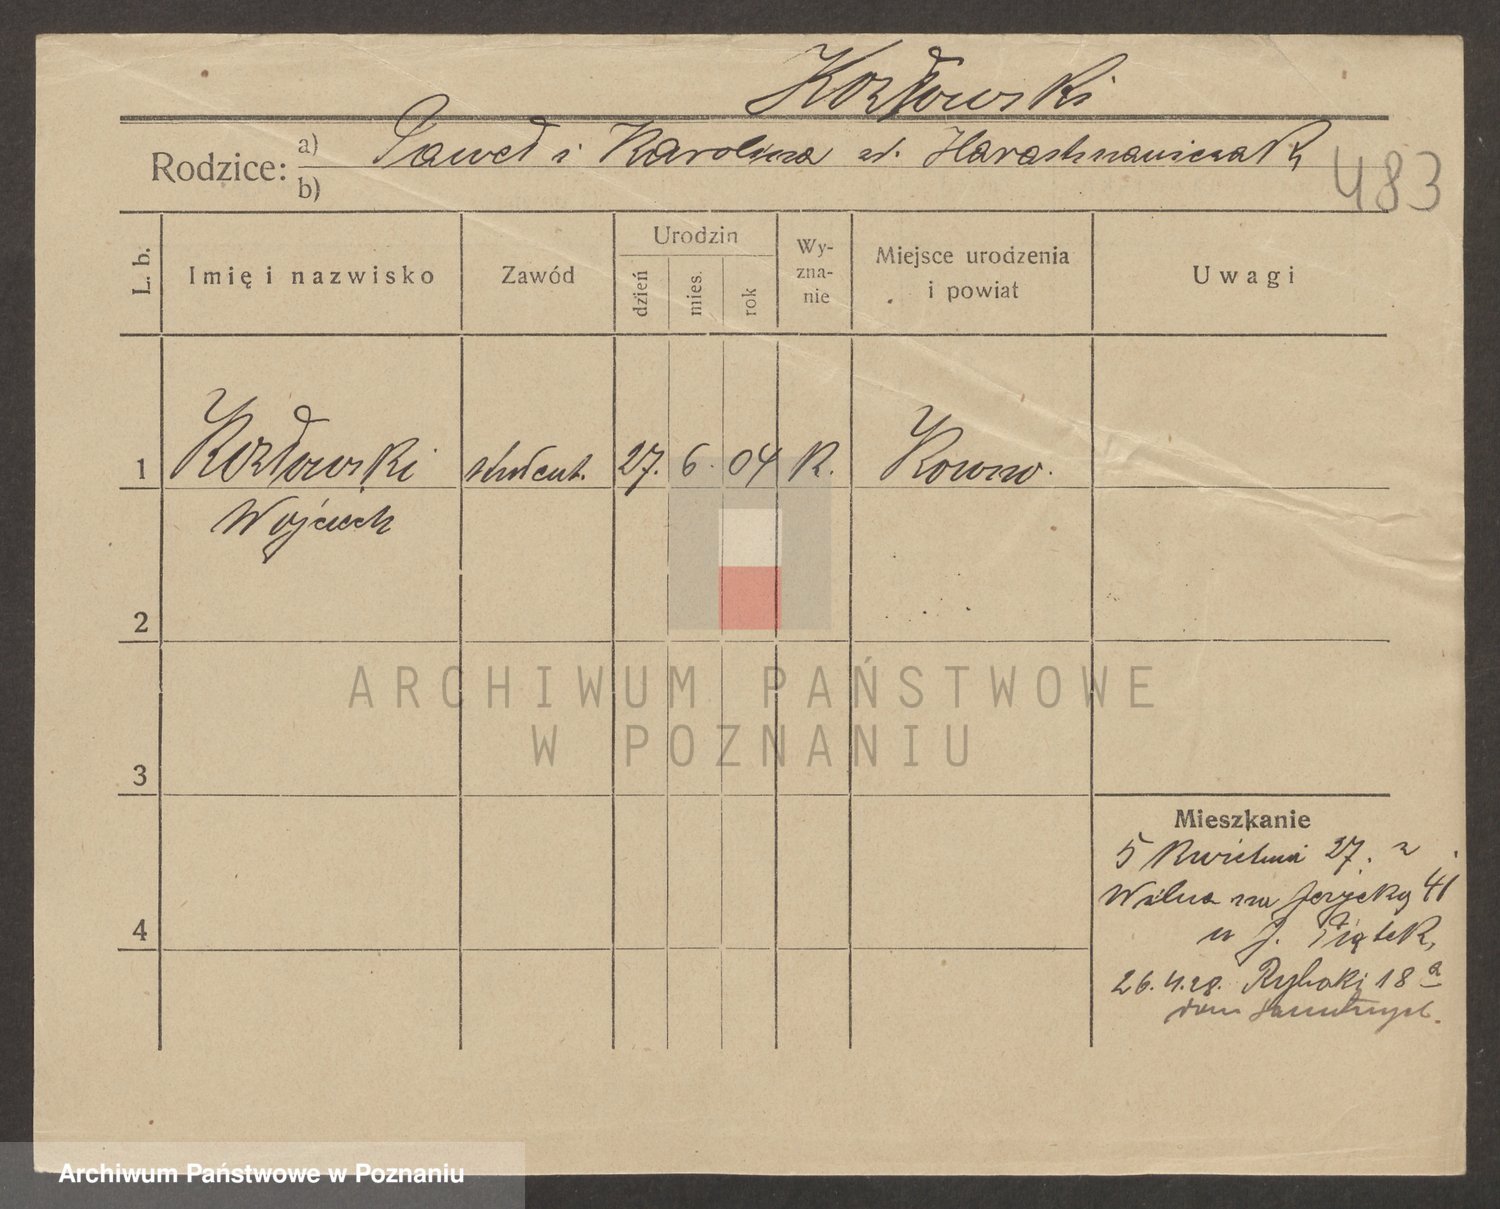 Kozłowski
Rodzice: a) Paweł i Karolina z d.
b)
483
L. b.
Imię i nazwisko
Zawód
Urodzin
dzień
mies.
rok
Wy-
zna-
nie
Miejsce urodzenia
i powiat
Uwagi
1 Kozłowski student. 27. 6. 04 R. Kowno.
Wojciech
2
ARCHIWUM PAŃSTWOWE
W POZNANIU
3
Mieszkanie
5 kwietnia 27. z
Wilna na Jeżycką 41
4
u J. Piątek,
26.4.28. Rybaki 18 a
dom
Archiwum Państwowe w Poznaniu